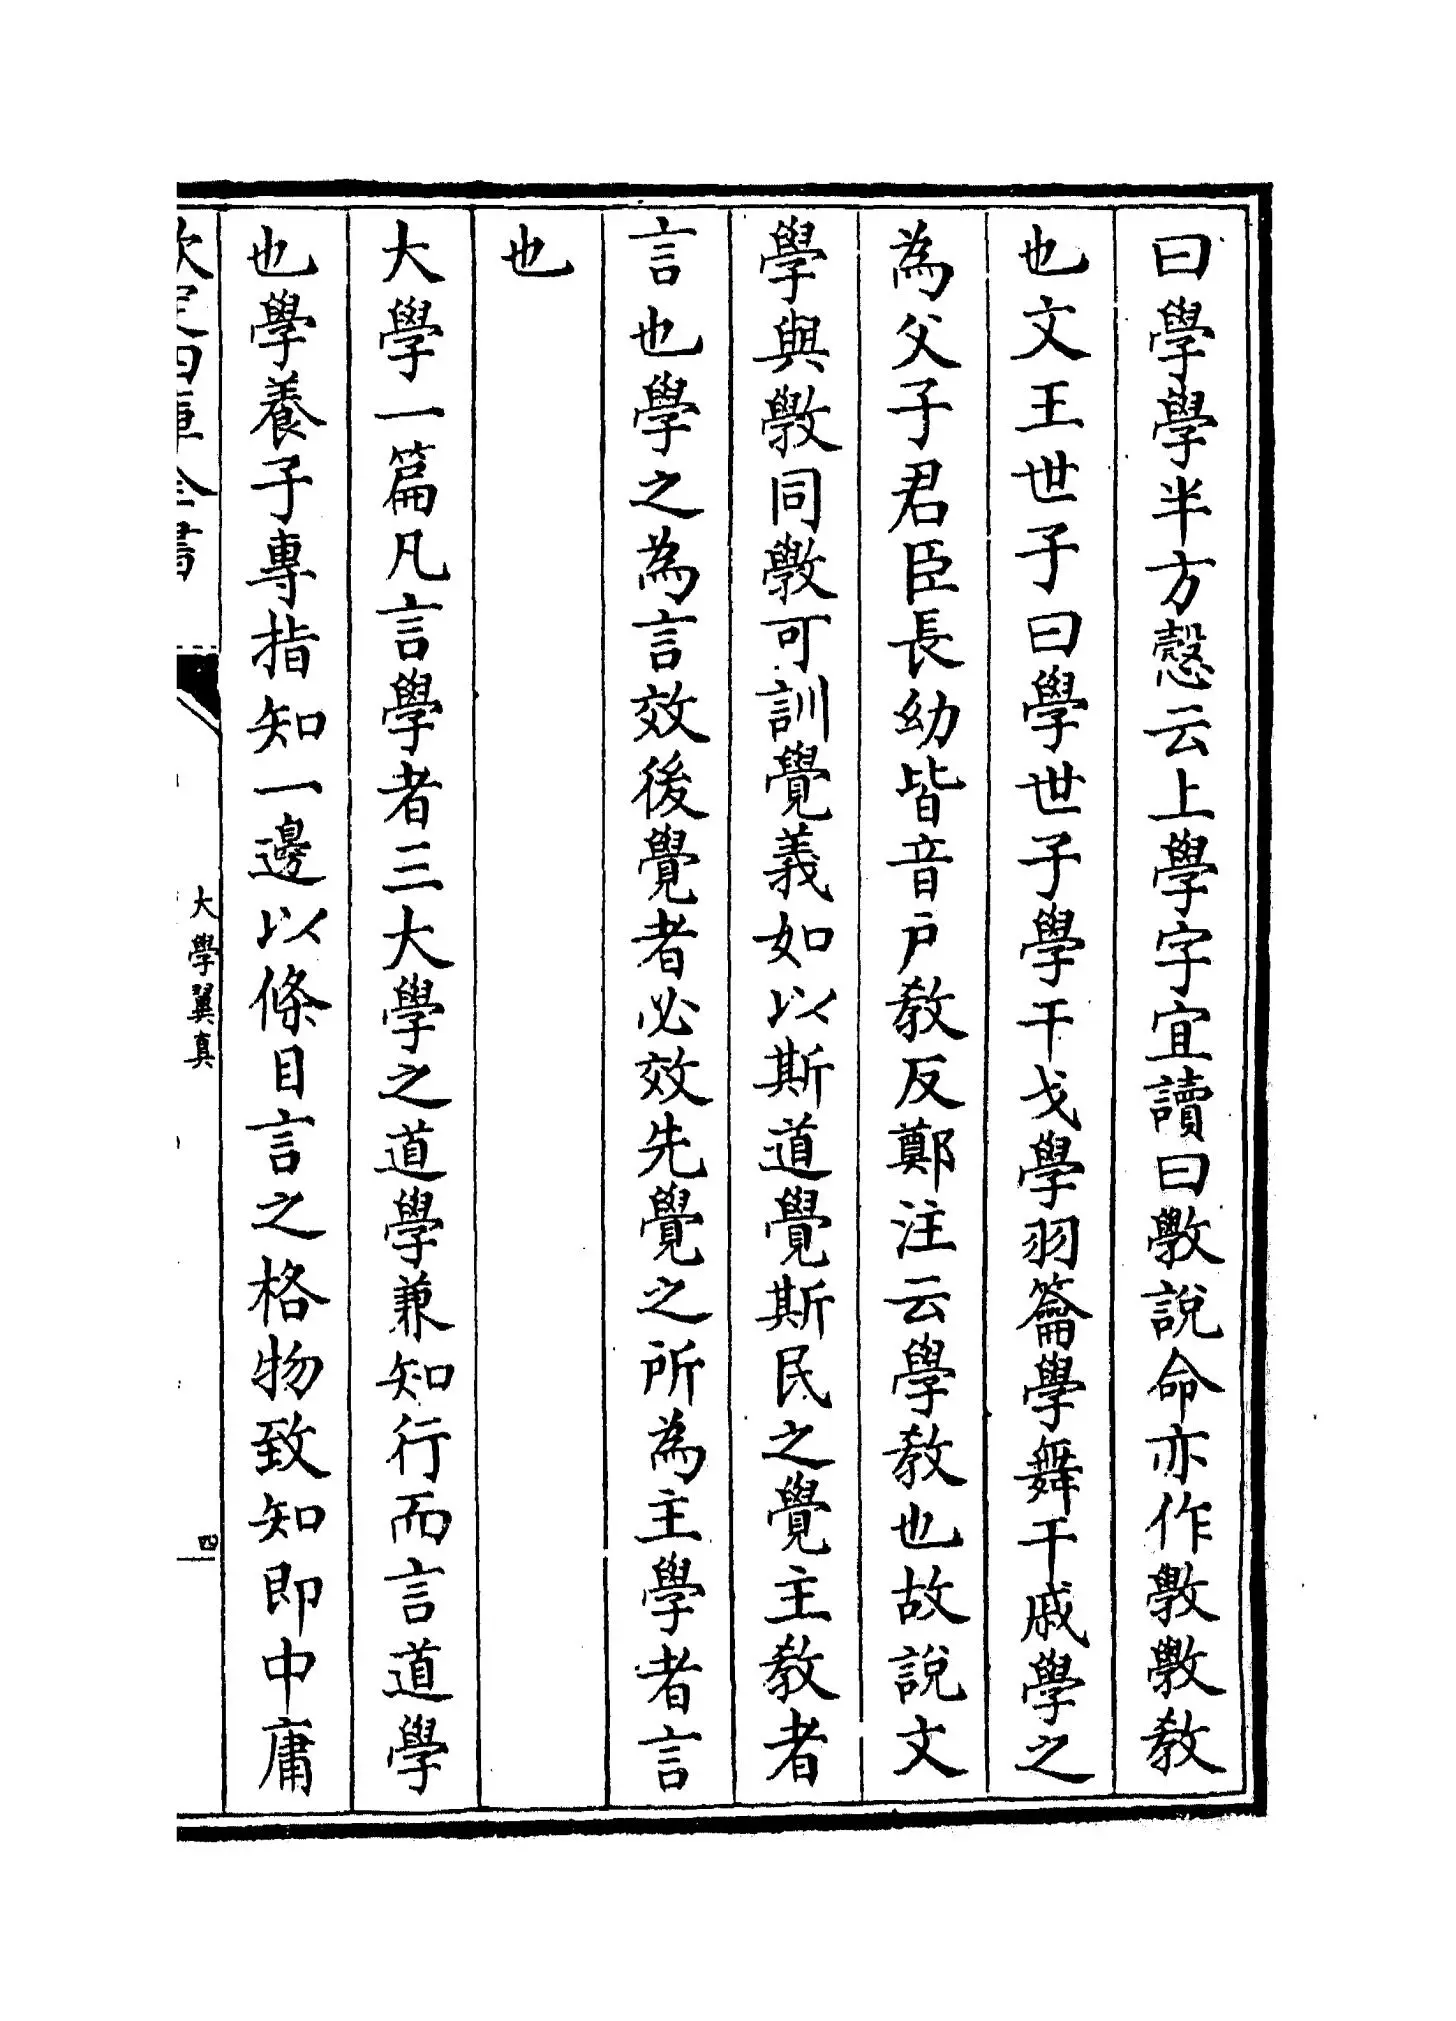 曰學學半方慤云上學字宜讀曰斆說命亦作斆斆教
也文王世子曰學世子學干戈學羽籥學舞干戚學之
為父子君臣長幼皆音户教反鄭注云學教也故說文
學與斆同斆可訓覺義如以斯道覺斯民之覺主教者
言也學之為言效後覺者必效先覺之所為主學者言
也
大學一篇凡言學者三大學之道學兼知行而言道學
也學養子專指知一邊以條目言之格物致知即中庸
欽定四庫全書
大學翼真
四